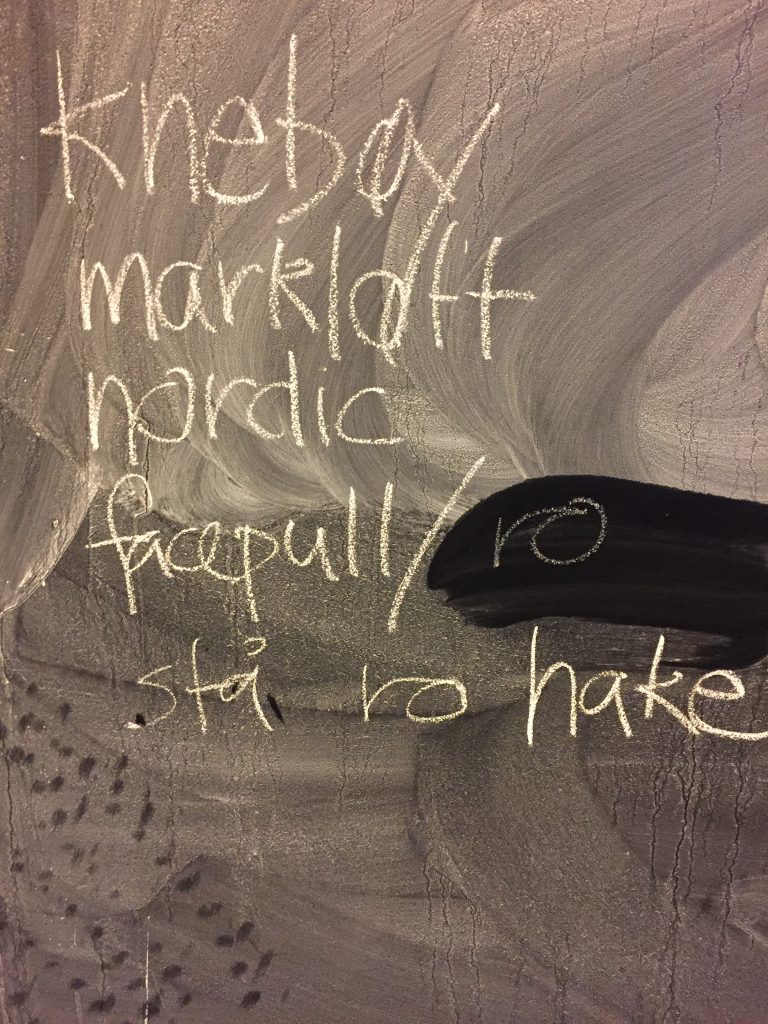 knebøy
markløft
nordic
facepull/ro
stå ro hake